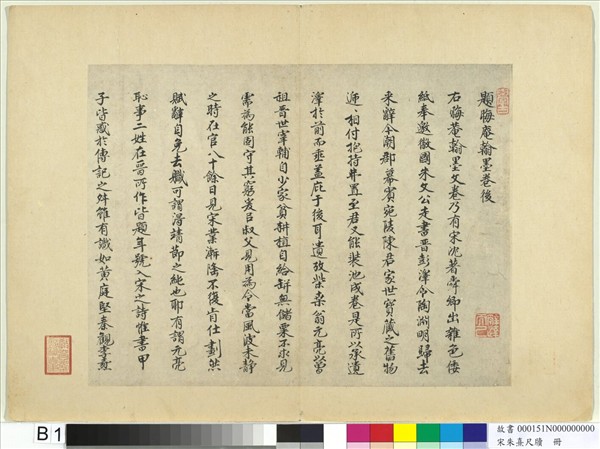 題晦庵翰墨卷後
右晦菴翰墨文卷乃有宋沈著卿出雜色倭
紙奉邀徽國朱文公走書晉彭澤令陶淵明歸去
來辭今潮郡幕賓宛陵陳君家世寶藏之舊物
遞相付抱持置至君又能裝池成卷是可以承遺
澤於前而垂蓋庇于後可遺攷柴桑翁元亮以曾
祖晉世宰輔自少家貧耕植自給缾無儲粟不求見
需為能固守其窮爰㠯叔父見用為令當風波未靜
之時在官八十餘日見宋業漸隆不復肯仕劃然
賦辭自免去職可謂得靖節之純也耶有謂元亮
恥事二姓在晉所作皆題年號入宋之詩惟書甲
子皆惑於傳記之舛雖有識如黃庭堅秦觀李燾
B 1
故書 000151N000000000
宋朱熹尺牘 冊